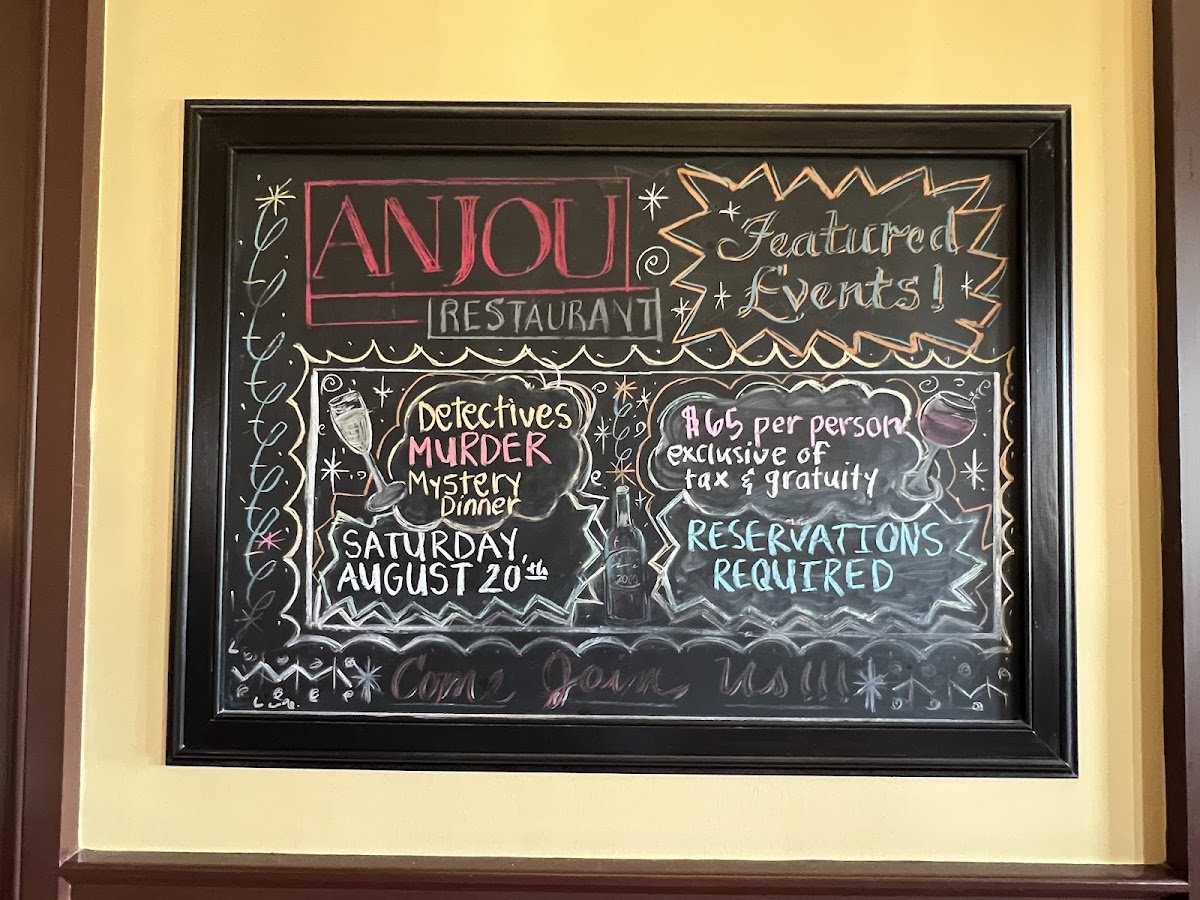 ANJOU
RESTAURANT
Featured
Events!
Detectives
MURDER
Mystery
Dinner
SATURDAY,
AUGUST 20th
$65 per person
exclusive of
tax & gratuity
RESERVATIONS
REQUIRED
Come Join Us!!!